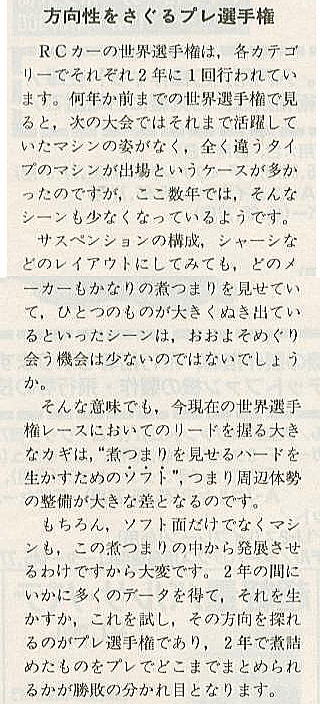 方向性をさぐるプレ選手権
　ＲＣカーの世界選手権は，各カテゴ
リーでそれぞれ２年に１回行われてい
ます。何年か前までの世界選手権で見
ると，次の大会ではそれまで活躍して
いたマシンの姿がなく，全く違うタイ
プのマシンが出場というケースが多か
ったのですが，ここ数年では，そんな
シーンも少なくなっているようです。
　サスペンションの構成，シャーシな
どのレイアウトにしてみても，どのメ
ーカーもかなりの煮つまりを見せてい
て，ひとつのものが大きくぬき出てい
るといったシーンは，おおよそめぐり
会う機会は少ないのではないでしょう
か。
　そんな意味でも，今現在の世界選手
権レースにおいてのリードを握る大き
なカギは，“煮つまりを見せるハードを
生かすためのソフト”，つまり周辺体勢
の整備が大きな差となるのです。
　もちろん，ソフト面だけでなくマシ
ンも，この煮つまりの中から発展させ
るわけですから大変です。２年の間に
いかに多くのデータを得て，それを生
かすか，これを試し，その方向を探れ
るのがプレ選手権であり，２年で煮詰
めたものをプレでどこまでまとめられ
るかが勝敗の分かれ目となります。